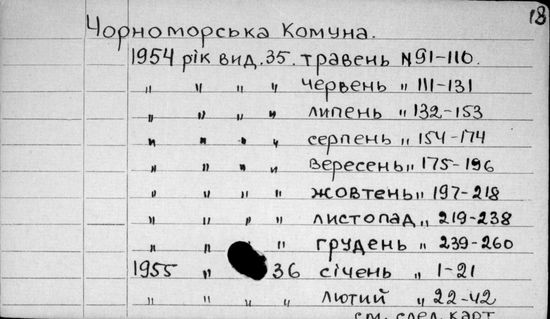 18
Чорноморська Комуна.
1954 рік вид. 35. травень N 91-110.
" " " " червень " 111-131
" " " " липень " 132-153
" " " " серпень " 154-174
" " " " вересень " 175-196
" " " " жовтень " 197-218
" " " " листопад " 219-238
" " " грудень " 239-260
1955 " 36 січень " 1-21
" " " " лютий " 22-42
см. след. карт